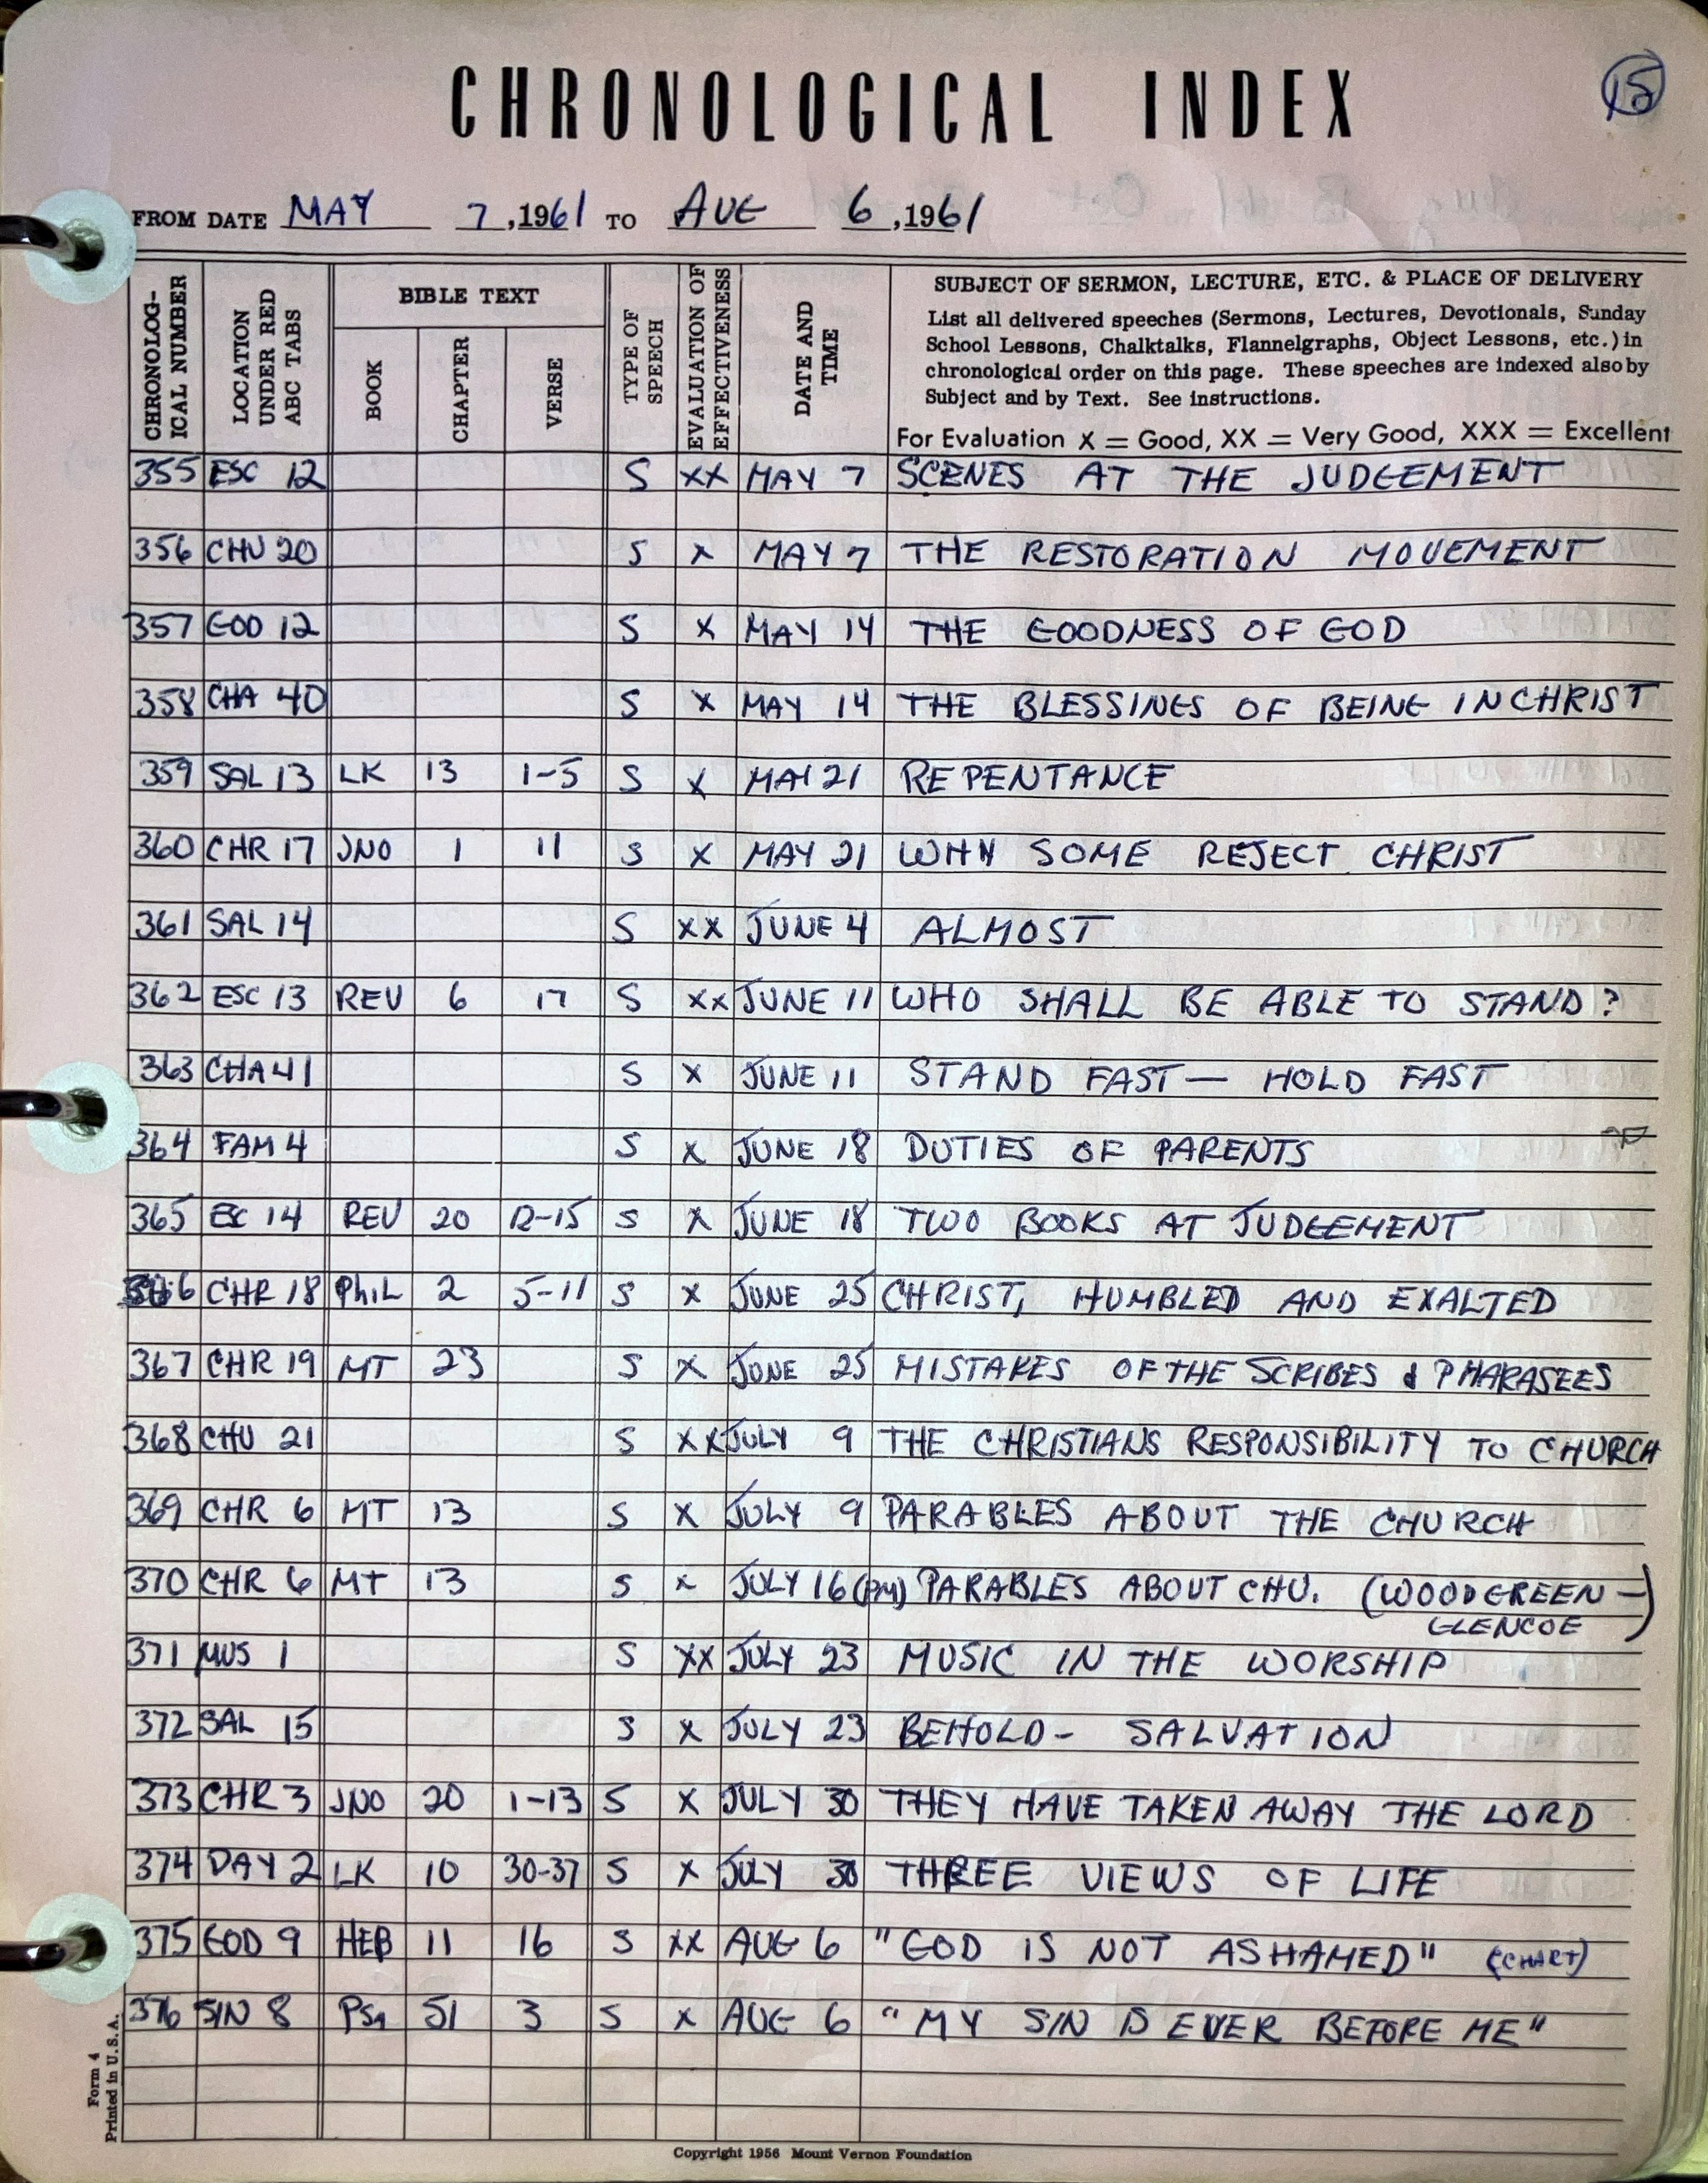 15
CHRONOLOGICAL INDEX
FROM DATE MAY 7, 1961 TO AUG 6, 1961
CHRONOLOG-
ICAL NUMBER
LOCATION
UNDER RED
ABC TABS
BIBLE TEXT
BOOK
CHAPTER
VERSE
TYPE OF
SPEECH
EVALUATION OF
EFFECTIVENESS
DATE AND
TIME
SUBJECT OF SERMON, LECTURE, ETC. & PLACE OF DELIVERY
List all delivered speeches (Sermons, Lectures, Devotionals, Sunday
School Lessons, Chalktalks, Flannelgraphs, Object Lessons, etc.) in
chronological order on this page. These speeches are indexed also by
Subject and by Text. See instructions.
For Evaluation X = Good, XX = Very Good, XXX = Excellent
355 ESC 12 S XX MAY 7 SCENES AT THE JUDGEMENT
356 CHU 20 S X MAY 7 THE RESTORATION MOVEMENT
357 GOD 12 S X MAY 14 THE GOODNESS OF GOD
358 CHA 40 S X MAY 14 THE BLESSINGS OF BEING IN CHRIST
359 SAL 13 LK 13 1-5 S X MAY 21 REPENTANCE
360 CHR 17 JNO 1 11 S X MAY 21 WHY SOME REJECT CHRIST
361 SAL 14 S XX JUNE 4 ALMOST
362 ESC 13 REV 6 17 S XX JUNE 11 WHO SHALL BE ABLE TO STAND?
363 CHA 41 S X JUNE 11 STAND FAST — HOLD FAST
364 FAM 4 S X JUNE 18 DUTIES OF PARENTS
365 EC 14 REV 20 12-15 S X JUNE 18 TWO BOOKS AT JUDGEMENT
366 CHR 18 PhiL 2 5-11 S X JUNE 25 CHRIST, HUMBLED AND EXALTED
367 CHR 19 MT 23 S X JUNE 25 MISTAKES OF THE SCRIBES & PHARASEES
368 CHU 21 S XX JULY 9 THE CHRISTIANS RESPONSIBILITY TO CHURCH
369 CHR 6 MT 13 S X JULY 9 PARABLES ABOUT THE CHURCH
370 CHR 6 MT 13 S X JULY 16 (PM) PARABLES ABOUT CHU. (WOODGREEN —
GLENCOE)
371 MUS 1 S XX JULY 23 MUSIC IN THE WORSHIP
372 SAL 15 S X JULY 23 BEHOLD - SALVATION
373 CHR 3 JNO 20 1-13 S X JULY 30 THEY HAVE TAKEN AWAY THE LORD
374 DAY 2 LK 10 30-37 S X JULY 30 THREE VIEWS OF LIFE
375 GOD 9 HEB 11 16 S XX AUG 6 "GOD IS NOT ASHAMED" (CHART)
376 SIN 8 PSA 51 3 S X AUG 6 "MY SIN IS EVER BEFORE ME"
Form 4
Printed in U.S.A.
Copyright 1956 Mount Vernon Foundation